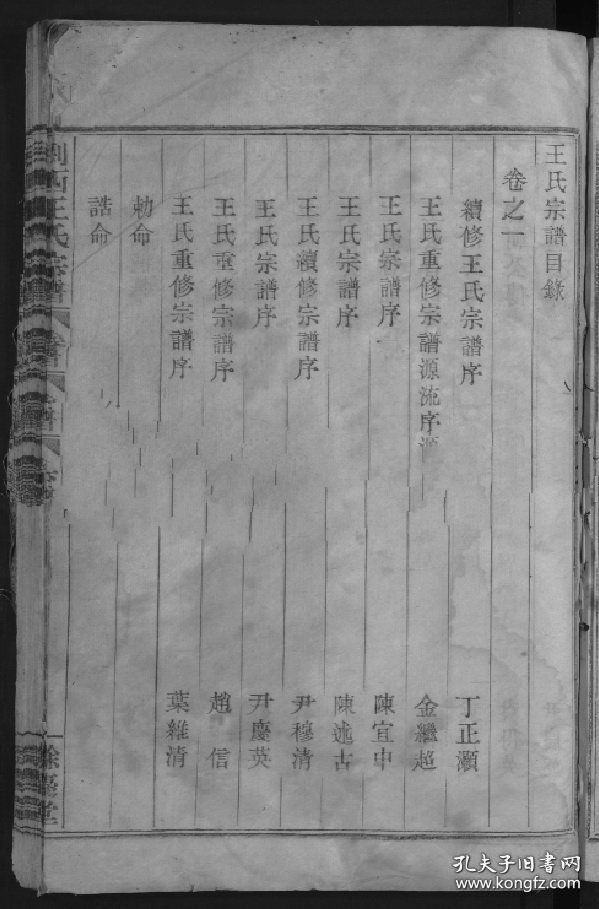 王氏宗譜目錄
卷之一
續修王氏宗譜序 丁正灝
王氏重修宗譜源流序 金繼超
王氏宗譜序 陳宜中
王氏宗譜序 陳述古
王氏續修宗譜序 尹穆清
王氏宗譜序 尹慶英
王氏重修宗譜序 趙信
王氏重修宗譜序 葉維清
勅命
誥命
西王氏宗譜
孔夫子旧书网
www.kongfz.com